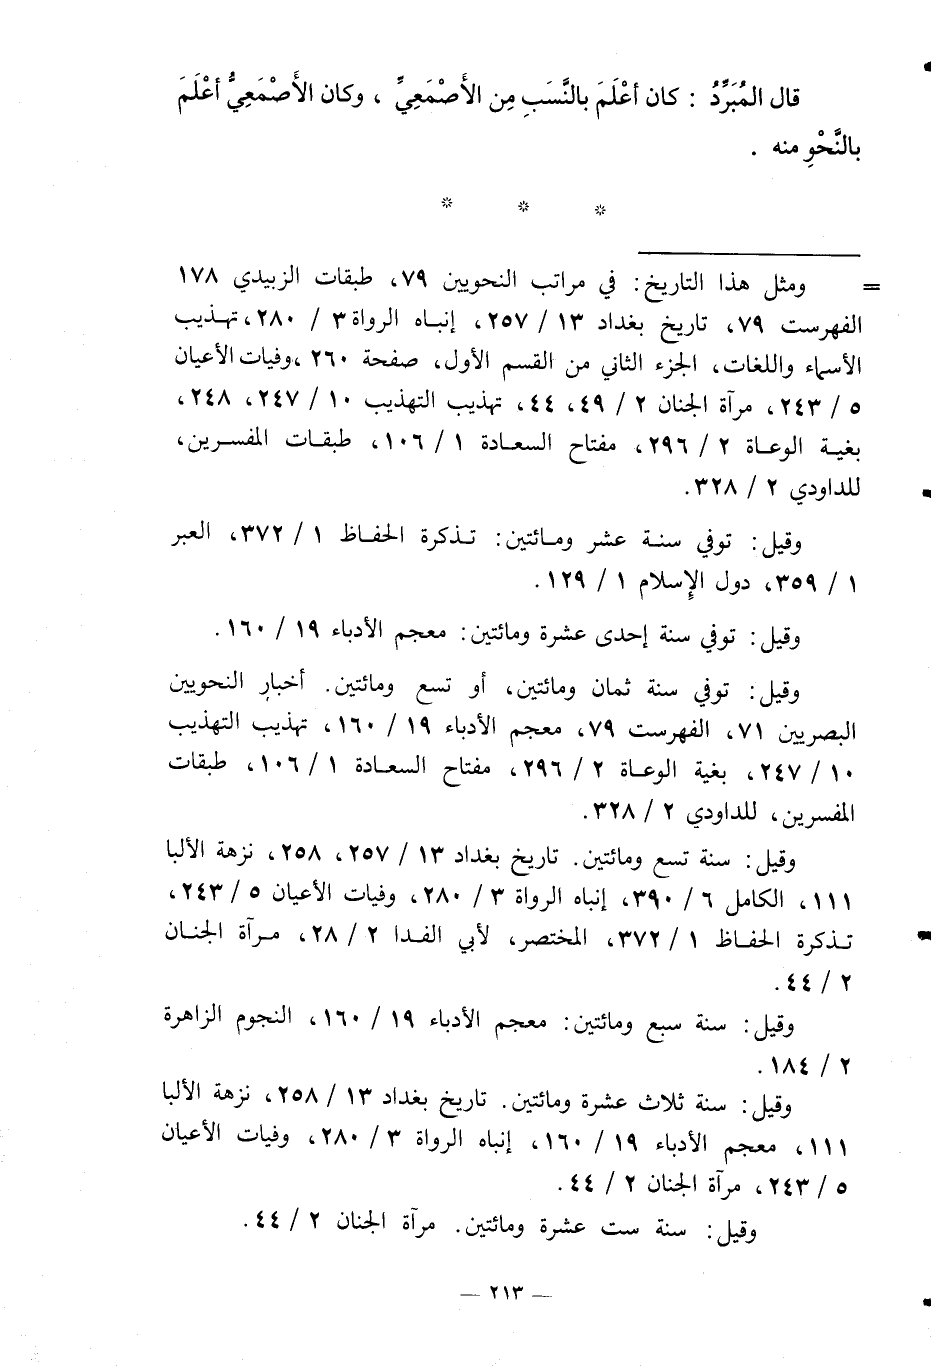 قال المُبَرِّدُ : كان أعْلَمَ بالنَّسَبِ مِن الأَصْمَعِيِّ ، وكان الأَصْمَعِيُّ أعْلَمَ
بالنَّحْوِ منه .
* * *
= ومثل هذا التاريخ: في مراتب النحويين ٧٩، طبقات الزبيدي ١٧٨
الفهرست ٧٩، تاريخ بغداد ١٣ / ٢٥٧، إنباه الرواة ٣ / ٢٨٠، تهذيب
الأسماء واللغات، الجزء الثاني من القسم الأول، صفحة ٢٦٠ ،وفيات الأعيان
٥ / ٢٤٣، مرآة الجنان ٢ / ٤٩، ٤٤، تهذيب التهذيب ١٠ / ٢٤٧، ٢٤٨،
بغية الوعاة ٢ / ٢٩٦، مفتاح السعادة ١ / ١٠٦، طبقات المفسرين،
للداودي ٢ / ٣٢٨.
وقيل: توفي سنة عشر ومائتين: تذكرة الحفاظ ١ / ٣٧٢، العبر
١ / ٣٥٩، دول الإسلام ١ / ١٢٩.
وقيل: توفي سنة إحدى عشرة ومائتين: معجم الأدباء ١٩ / ١٦٠.
وقيل: توفي سنة ثمان ومائتين، أو تسع ومائتين. أخبار النحويين
البصريين ٧١، الفهرست ٧٩، معجم الأدباء ١٩ / ١٦٠، تهذيب التهذيب
١٠ / ٢٤٧، بغية الوعاة ٢ / ٢٩٦، مفتاح السعادة ١ / ١٠٦، طبقات
المفسرين، للداودي ٢ / ٣٢٨.
وقيل: سنة تسع ومائتين. تاريخ بغداد ١٣ / ٢٥٧، ٢٥٨، نزهة الألبا
١١١، الكامل ٦ / ٣٩٠، إنباه الرواة ٣ / ٢٨٠، وفيات الأعيان ٥ / ٢٤٣،
تذكرة الحفاظ ١ / ٣٧٢، المختصر، لأبي الفدا ٢ / ٢٨، مرآة الجنان
٢ / ٤٤.
وقيل: سنة سبع ومائتين: معجم الأدباء ١٩ / ١٦٠، النجوم الزاهرة
٢ / ١٨٤.
وقيل: سنة ثلاث عشرة ومائتين. تاريخ بغداد ١٣ / ٢٥٨، نزهة الألبا
١١١، معجم الأدباء ١٩ / ١٦٠، إنباه الرواة ٣ / ٢٨٠، وفيات الأعيان
٥ / ٢٤٣، مرآة الجنان ٢ / ٤٤.
وقيل: سنة ست عشرة ومائتين. مرآة الجنان ٢ / ٤٤.
— ٢١٣ —